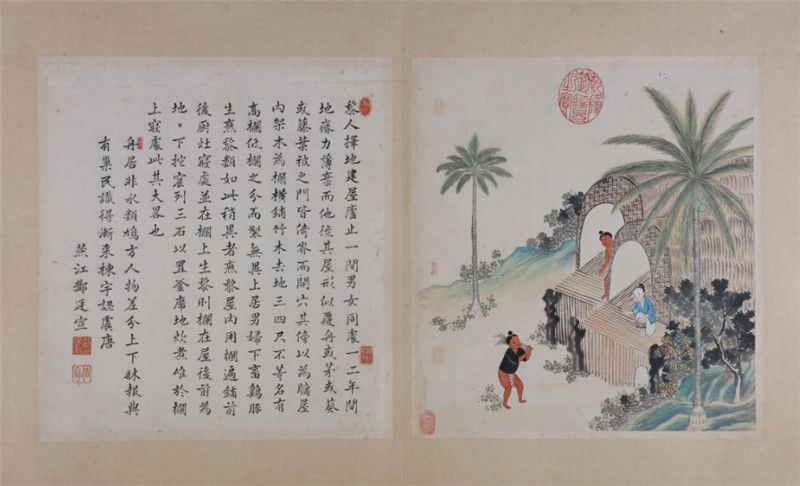 黎人擇地建屋廬止一間男女同處一二年間
地瘠力薄棄而他徙其屋形似覆舟或茅或葵
或藤葉被之門皆倚脊而開穴其傍以為牖屋
內架木為欄橫鋪竹木去地三四尺不等名有
高欄低欄之分而製無異上居男婦下畜雞豚
生熟黎類如此稍異者熟黎屋內用欄通鋪前
後厨灶寢處並在欄上生黎則欄在屋後前為
地〃下挖窟列三石以置釜席地炊煮惟於欄
上寢處此其大畧也
舟居非水類鳩方人物差分上下牀報與
有巢民識得漸來棟宇認虞唐
燕江鄧廷宣
乾隆御覽之寶